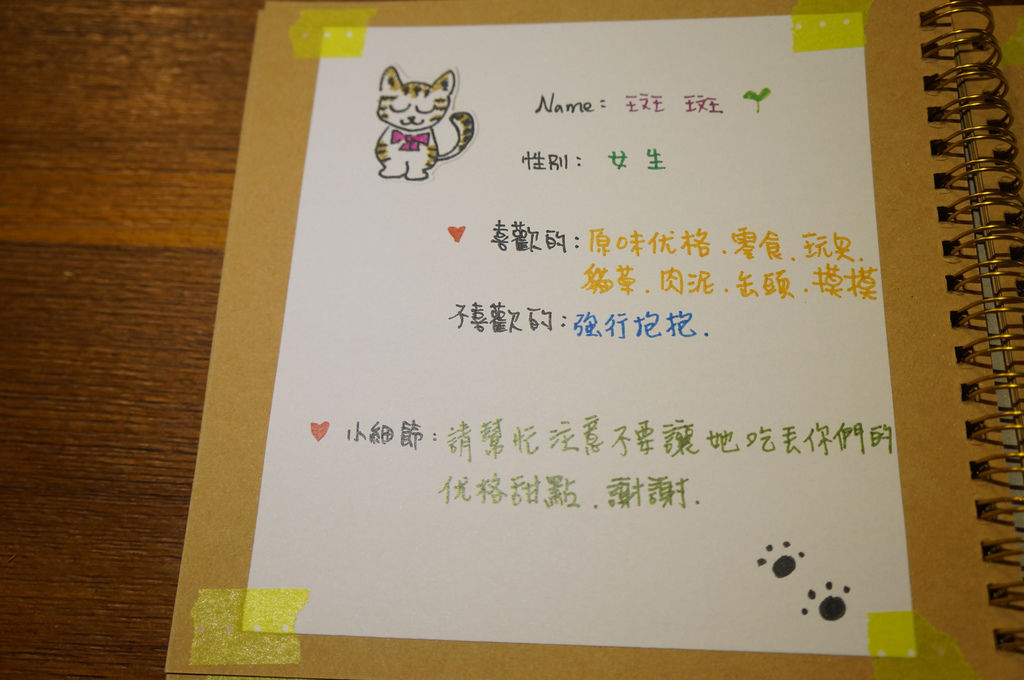 Name: 斑 斑
性別: 女生
喜歡的:原味优格.零食.玩具.
貓草.肉泥.缶頭.摸摸
不喜歡的:強行抱抱.
小細節:請幫忙注意不要讓她吃丟你們的
优格甜點.謝謝.